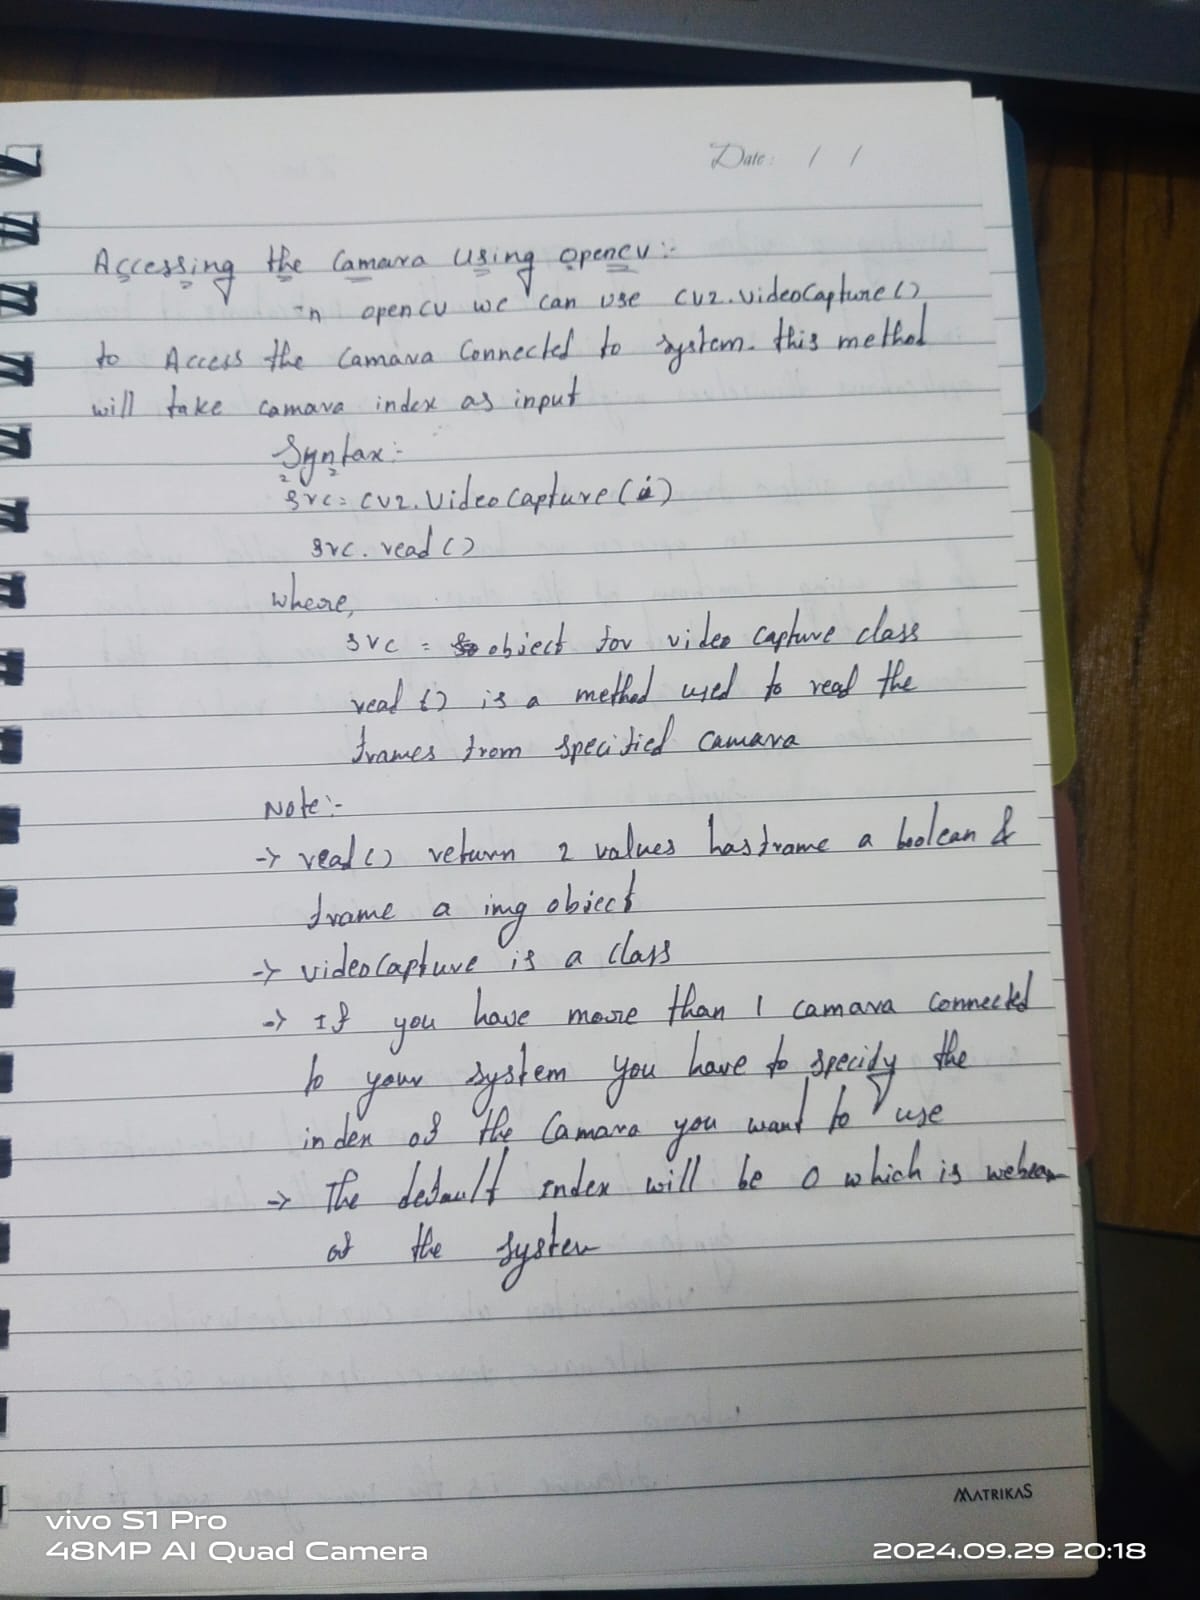 Date: / /
Accessing the Camara using opencv:-
In opencv we can use cv2.videoCapture()
to Access the Camara Connected to system. this method
will take camara index as input
Syntax:-
src = cv2.VideoCapture(i)
src.read()
where,
src = object for video capture class
read () is a method used to read the
frames from specified camara
Note:-
-> read() return 2 values hasframe a boolean &
frame a img object
-> videoCapture is a class
-> If you have more than 1 camara connected
to your system you have to specify the
index of the Camara you want to use
-> The default index will be 0 which is webcam
of the system
MATRIKAS
vivo S1 Pro
48MP AI Quad Camera
2024.09.29 20:18